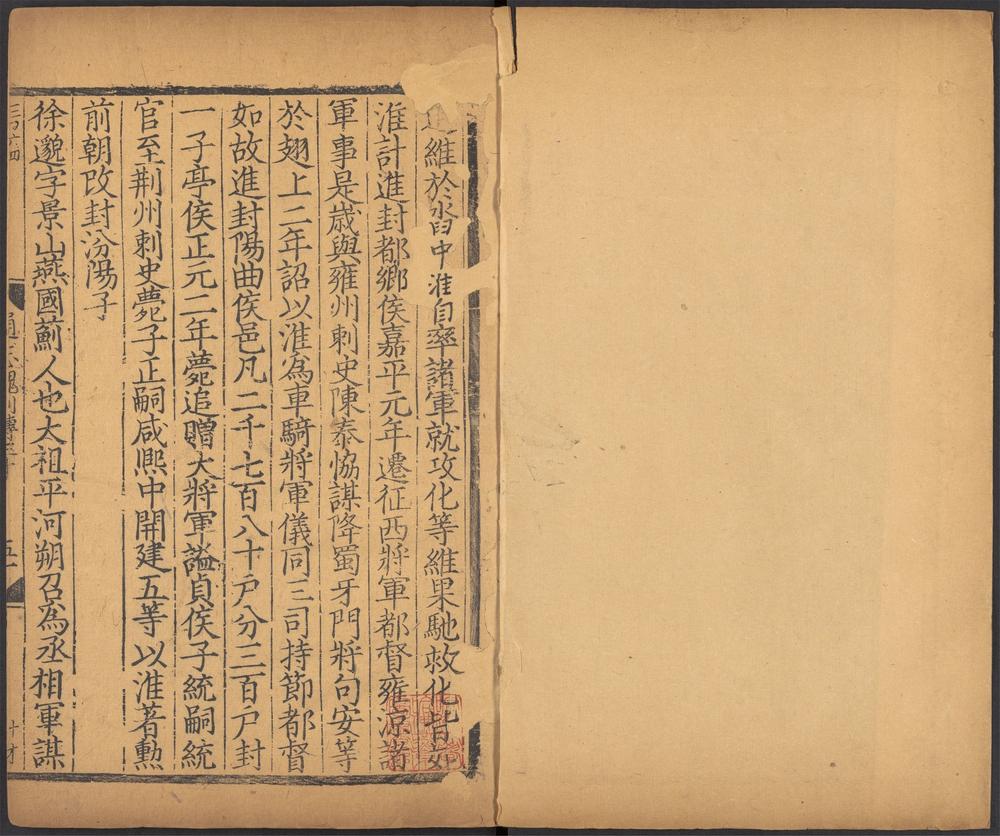 追維於沓中淮自率諸軍就攻化等維果馳救化皆如
淮計進封都鄉侯嘉平元年遷征西將軍都督雍涼諸
軍事是歲與雍州刺史陳泰恊謀降蜀牙門將句安等
於翅上二年詔以淮爲車騎將軍儀同三司持節都督
如故進封陽曲侯邑凡二千七百八十戶分三百戶封
一子亭侯正元二年薨追贈大將軍謚貞侯子統嗣統
官至荆州刺史薨子正嗣咸熙中開建五等以淮著勲
前朝改封汾陽子
徐邈字景山燕國薊人也太祖平河朔召爲丞相軍謀